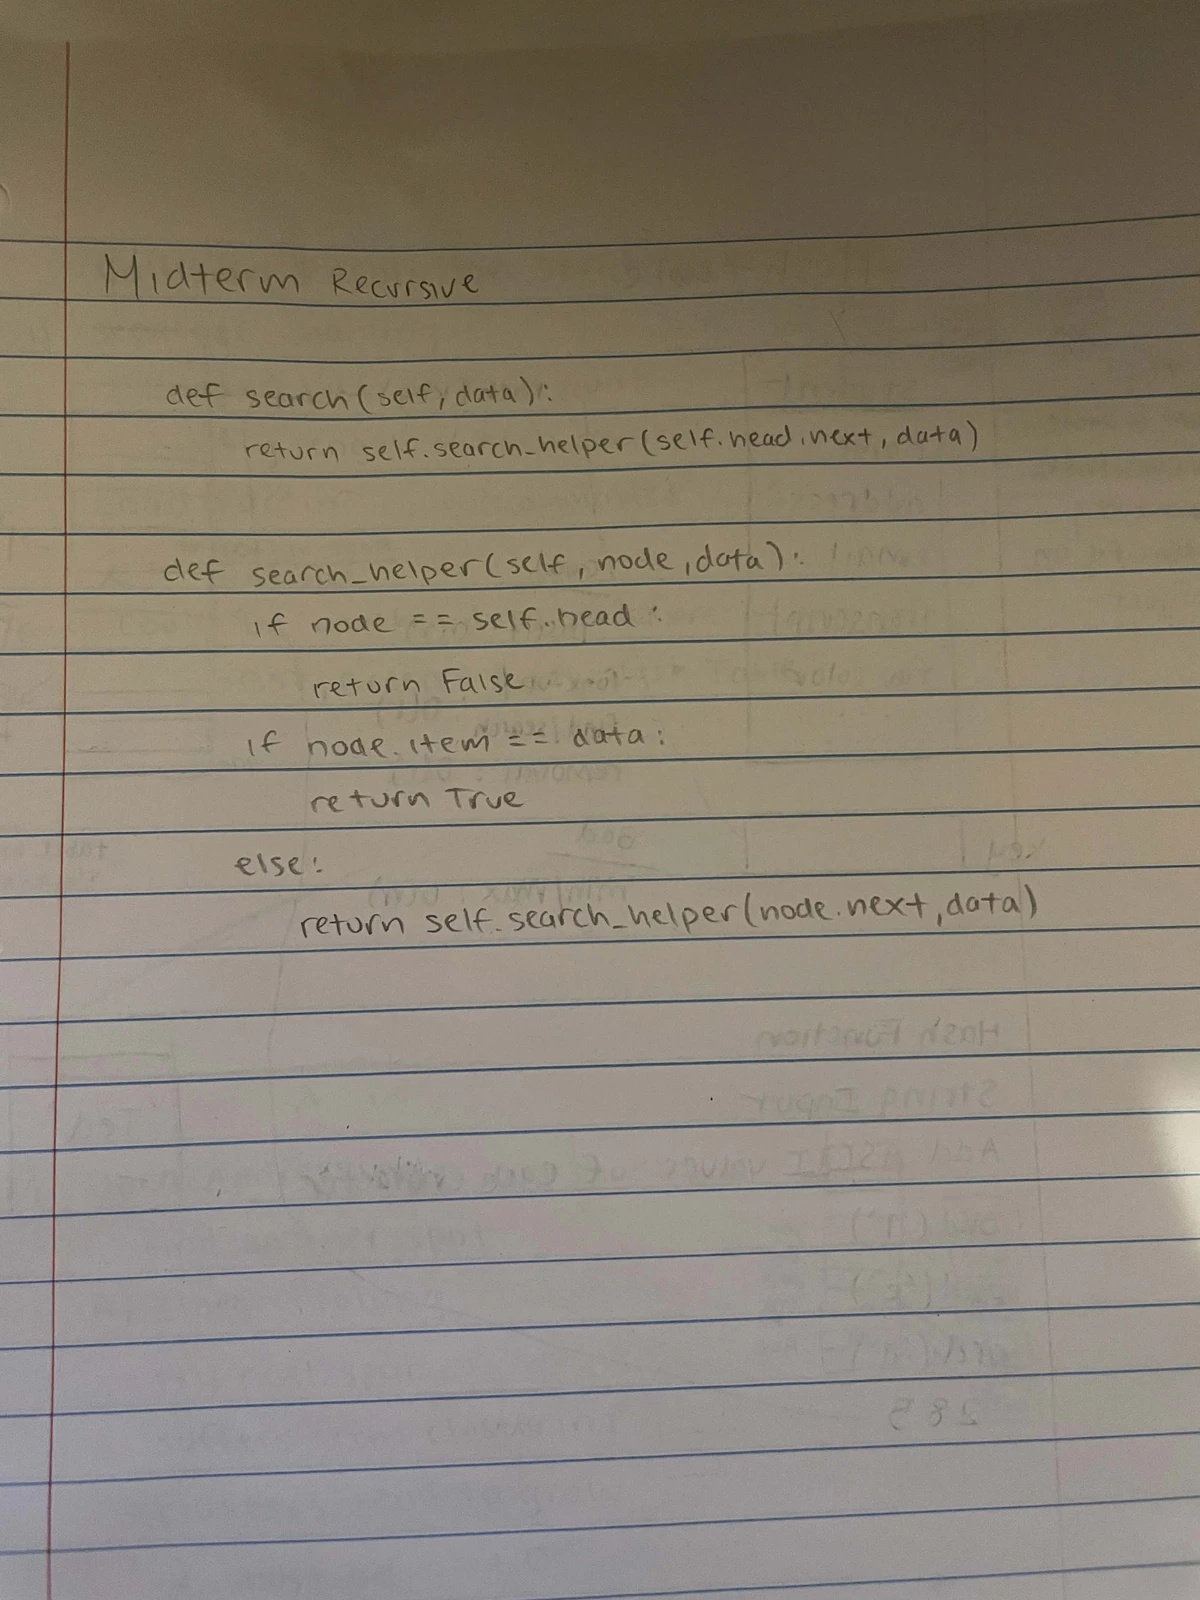 Midterm Recursive
def search(self, data):
return self.search_helper(self.head.next, data)
def search_helper(self, node, data):
if node == self.head:
return False
if node.item == data:
return True
else:
return self.search_helper(node.next, data)
Hash Function
String Input
Add ASCII values of each
285